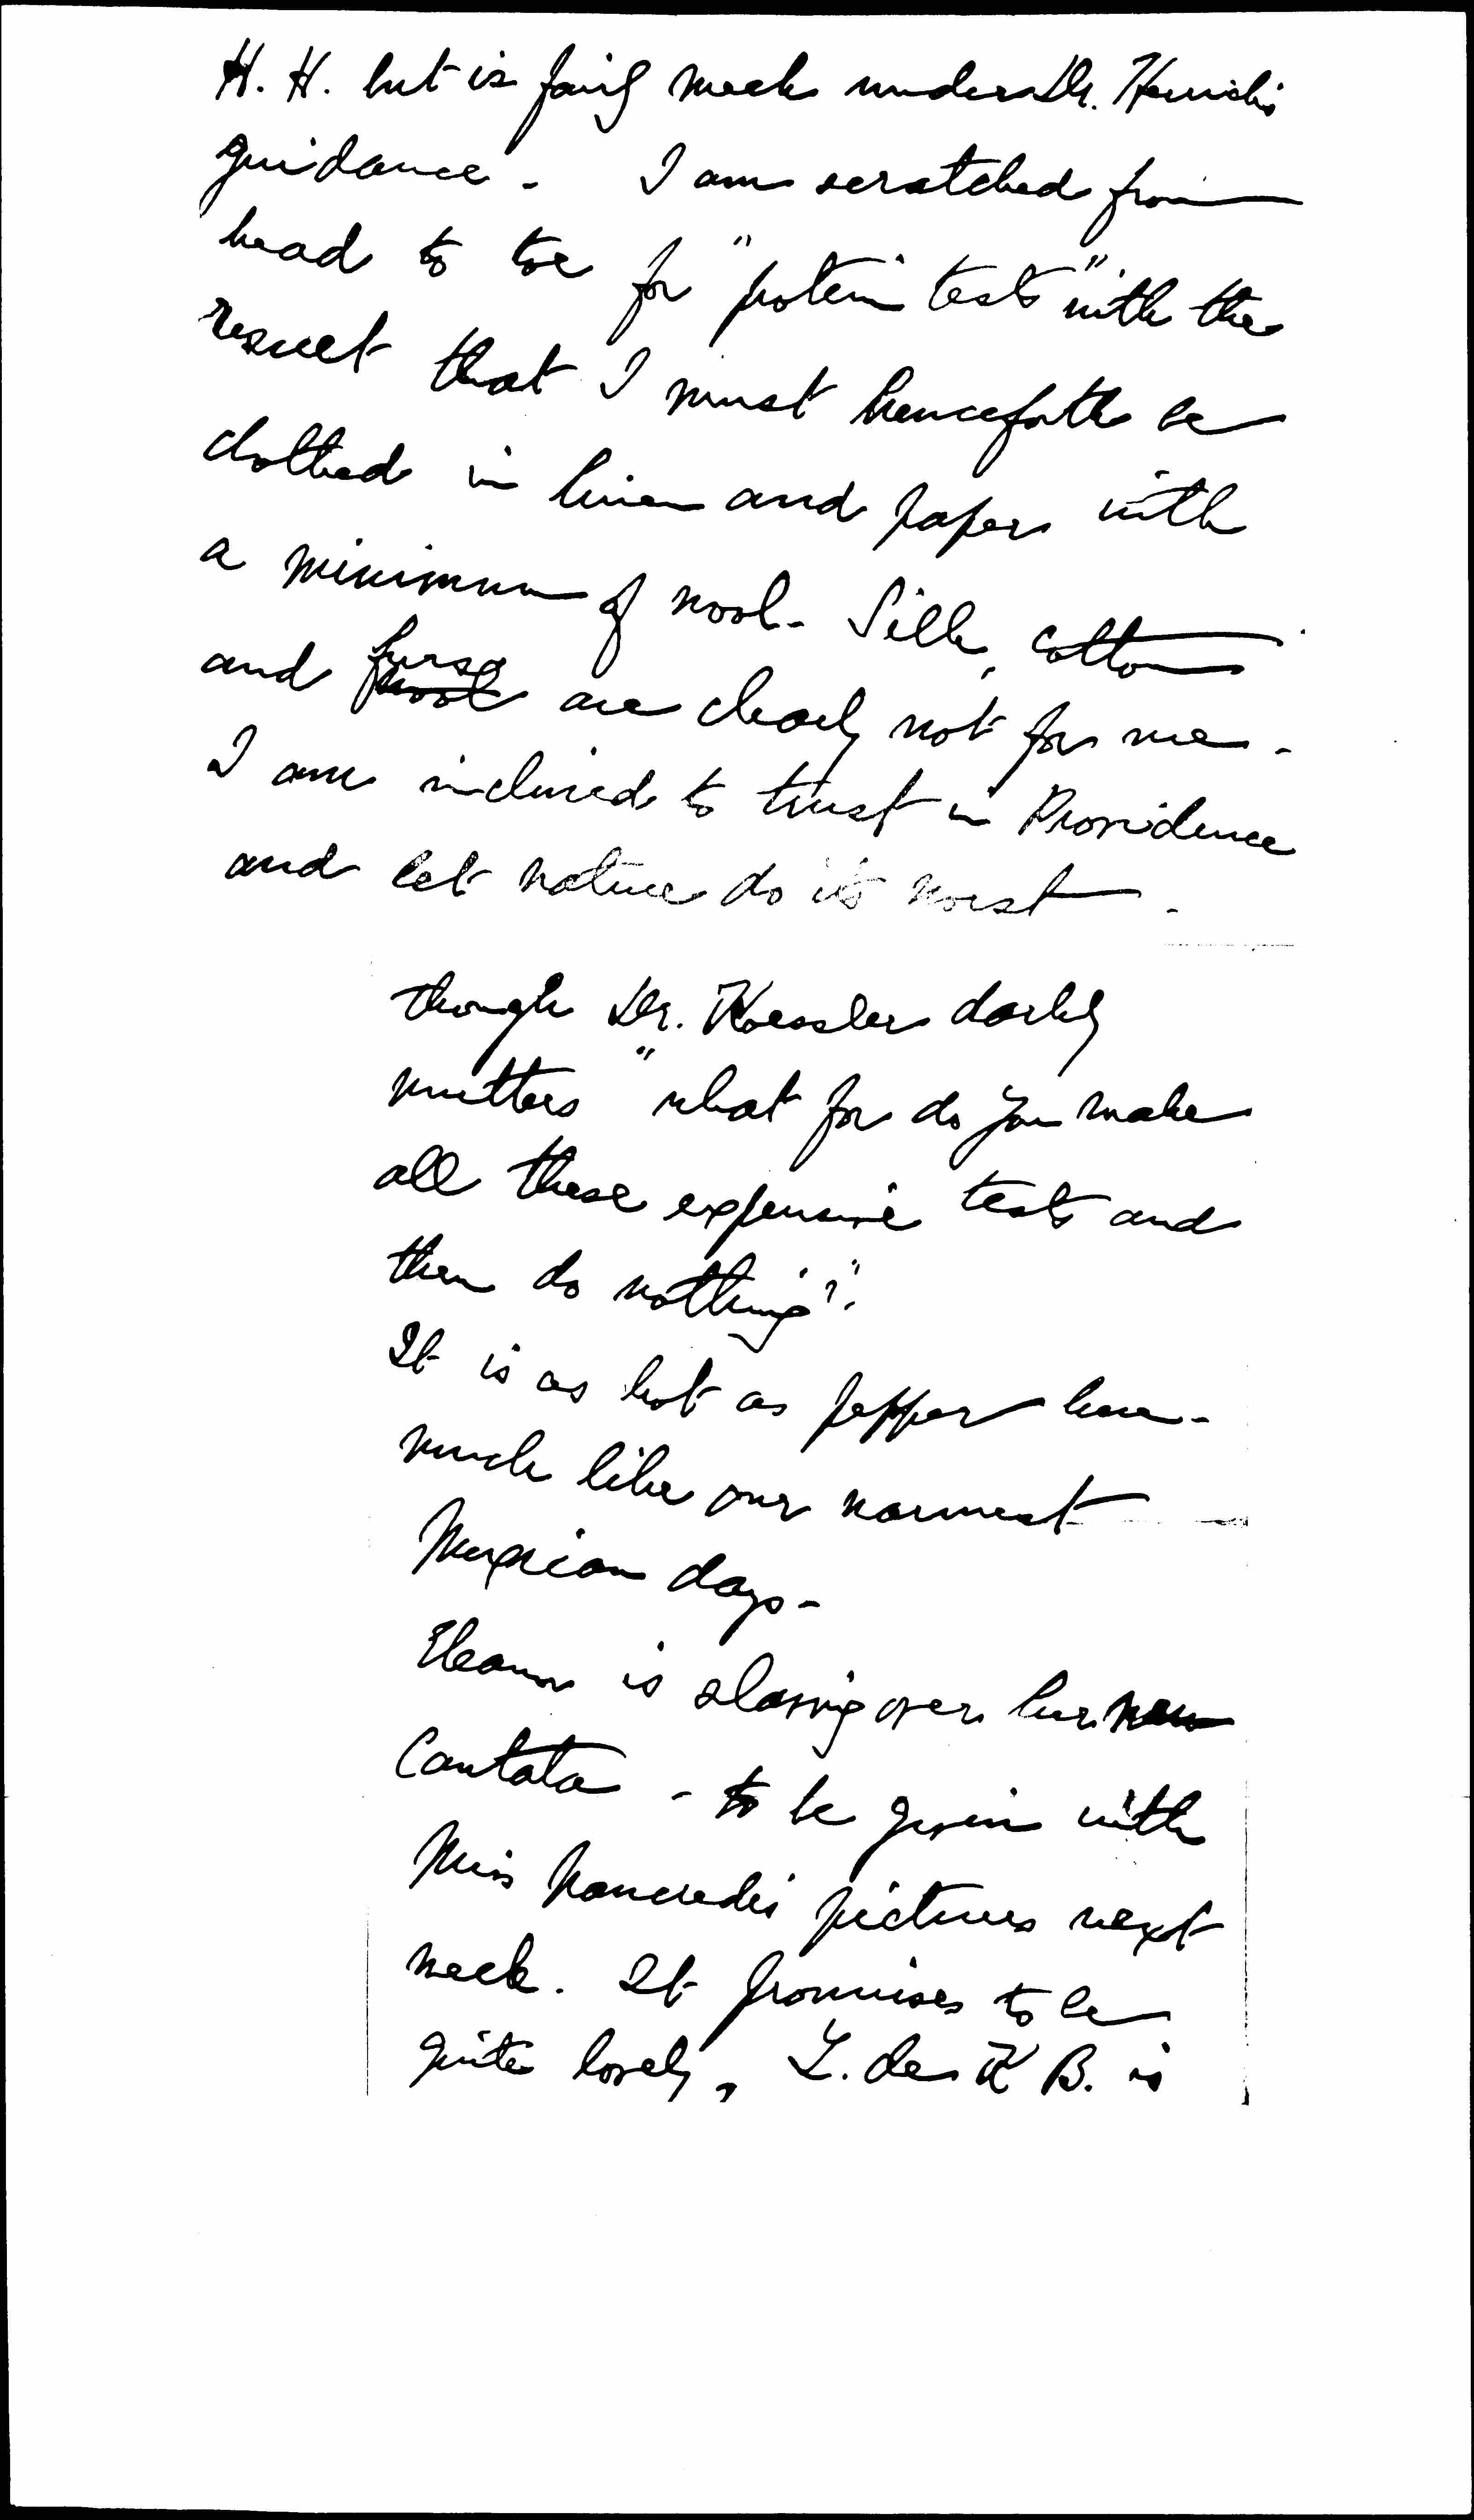 H. H. but is fairly meek under Dr. Herrick's
guidance - I am scratched from
head to toe for "protein tests" with the
result that I must henceforth be
clothed in linen and paper with
a minimum of wool - Silk, cotton
and furs are clearly not for me -
I am inclined to trust in Providence
and let nature do its worst -
though Dr. Koessler darkly
mutters "what for do you make
all these expensive tests and
then do nothing"?
It is as hot as pepper here -
much like our warmest
Mexican days -
Eleanor is slaving over her new
Cantata - to be given with
Miss pictures next
week. It promises to be
quite lovely, L. de K B. is